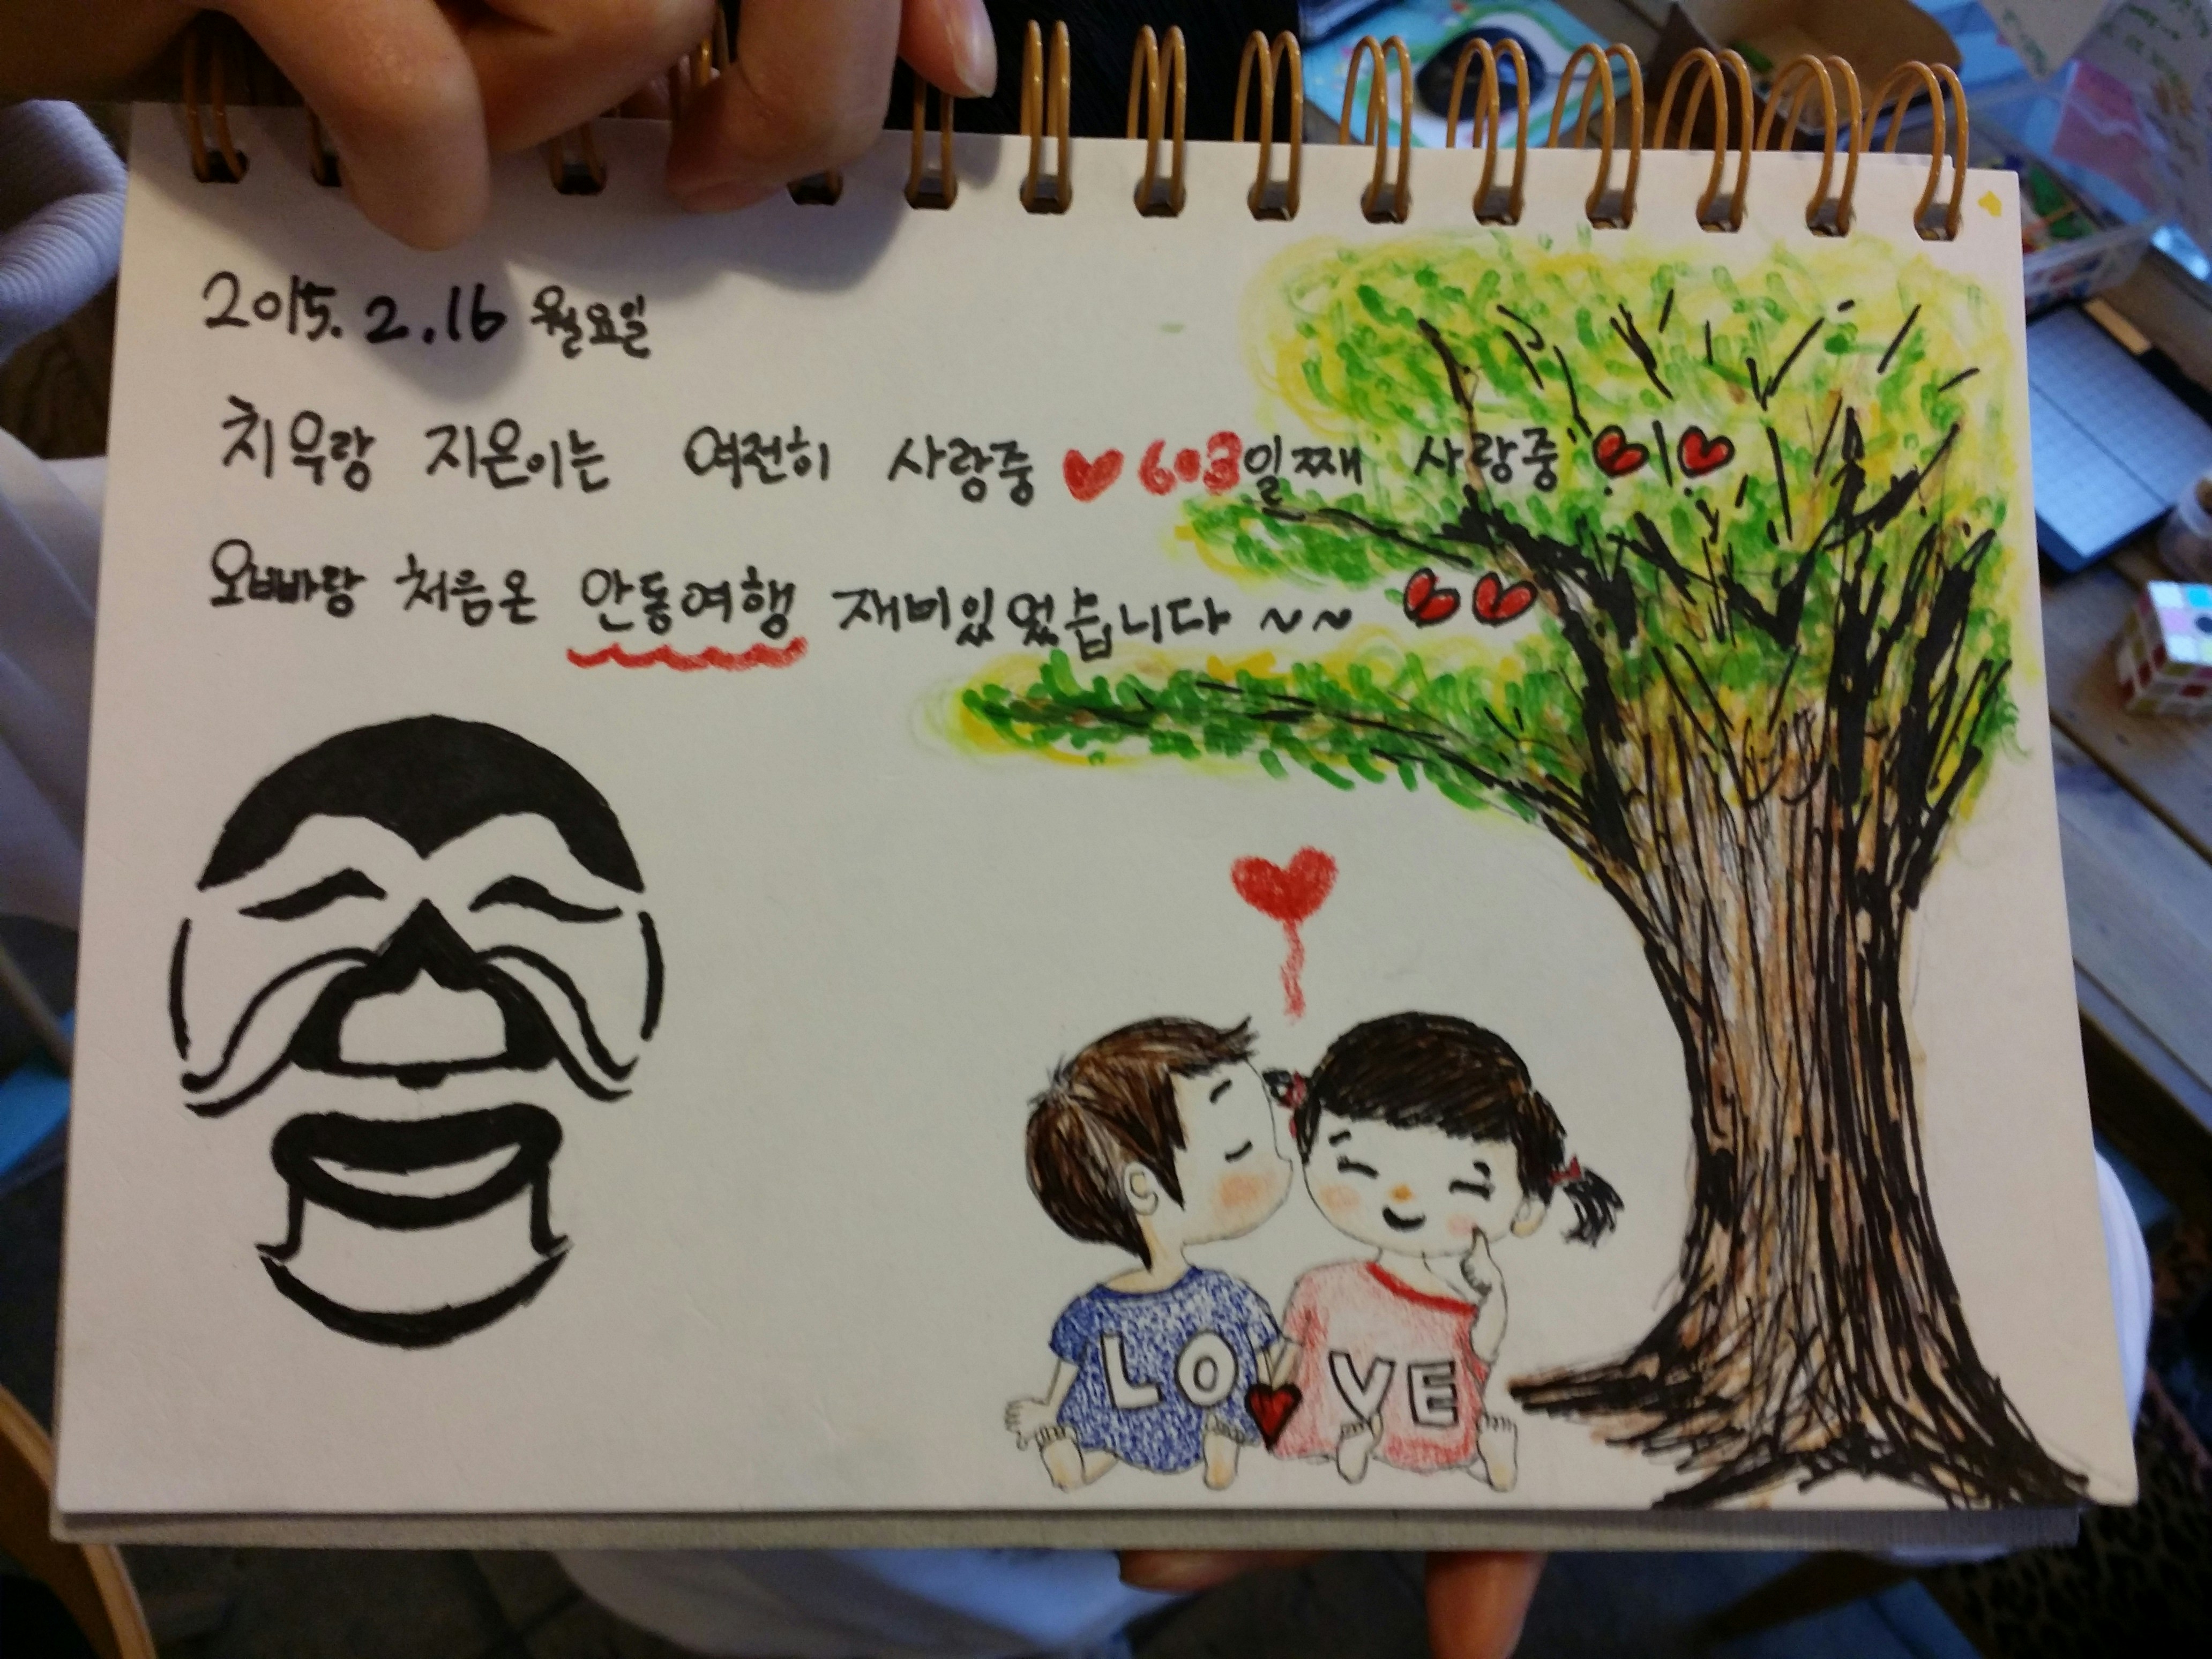 2015. 2. 16 월요일
치우랑 지온이는 여전히 사랑중 ♥ 603일째 사랑중 ♥ㅣ♥
오빠랑 처음온 안동여행 재미있었습니다 ~~ ♥♥
LO♥VE